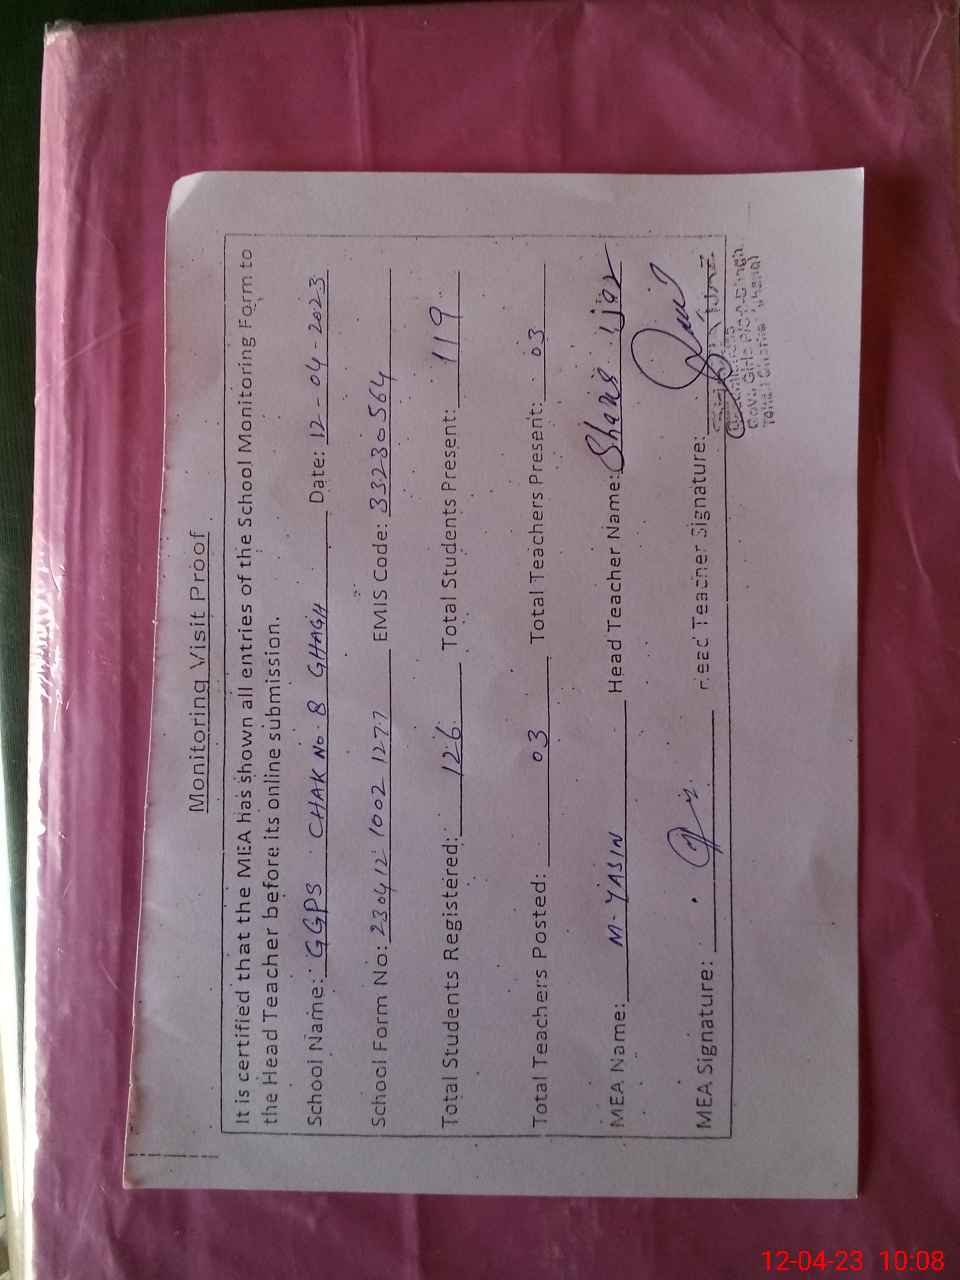 Monitoring Visit Proof
It is certified that the MEA has shown all entries of the School Monitoring Form to
the Head Teacher before its online submission.
School Name: GGPS CHAK No. 8 GHAGH Date: 12-04-2023
School Form No: 230412 1002 1277 EMIS Code: 33230564
Total Students Registered: 126 Total Students Present: 119
Total Teachers Posted: 03 Total Teachers Present: 03
MEA Name: M. YASIN Head Teacher Name:
MEA Signature: Head Teacher Signature:
Govt. Girls
12-04-23 10:08